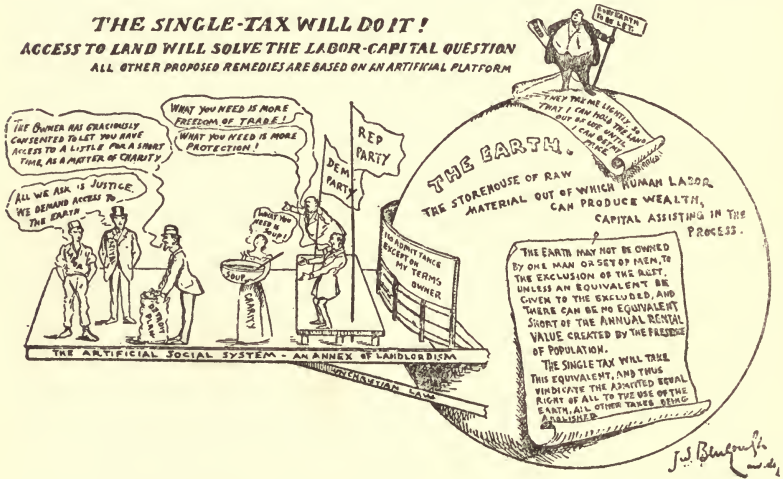 THE SINGLE-TAX WILL DO IT!
ACCESS TO LAND WILL SOLVE THE LABOR-CAPITAL QUESTION
ALL OTHER PROPOSED REMEDIES ARE BASED ON AN ARTIFICIAL PLATFORM
THE OWNER HAS GRACIOUSLY
CONSENTED TO LET YOU HAVE
ACCESS TO A LITTLE FOR A SHORT
TIME, AS A MATTER OF CHARITY
ALL WE ASK IS JUSTICE,
WE DEMAND ACCESS TO
THE EARTH
WHAT YOU NEED IS MORE
FREEDOM OF TRADE!
WHAT YOU NEED IS MORE
PROTECTION!
WHAT YOU
NEED IS
SOUP!
SOUP
CHARITY
DETROIT
PLAN
DEM
PARTY
REP
PARTY
NO ADMITTANCE
EXCEPT ON
MY TERMS
OWNER
THE ARTIFICIAL SOCIAL SYSTEM - AN ANNEX OF LANDLORDISM
UNCHRISTIAN LAW
THIS EARTH
TO BE LET.
THEY TAX ME LIGHTLY SO
THAT I CAN HOLD THE LAND
OUT OF USE UNTIL
I CAN GET MY
PRICE
THE EARTH.
THE STOREHOUSE OF RAW
MATERIAL OUT OF WHICH HUMAN LABOR
CAN PRODUCE WEALTH,
CAPITAL ASSISTING IN THE
PROCESS.
THE EARTH MAY NOT BE OWNED
BY ONE MAN OR SET OF MEN, TO
THE EXCLUSION OF THE REST,
UNLESS AN EQUIVALENT BE
GIVEN TO THE EXCLUDED, AND
THERE CAN BE NO EQUIVALENT
SHORT OF THE ANNUAL RENTAL
VALUE CREATED BY THE PRESENCE
OF POPULATION.
THE SINGLE TAX WILL TAKE
THIS EQUIVALENT, AND THUS
VINDICATE THE ADMITTED EQUAL
RIGHT OF ALL TO THE USE OF THE
EARTH, ALL OTHER TAXES BEING
ABOLISHED
J.W. Bengough